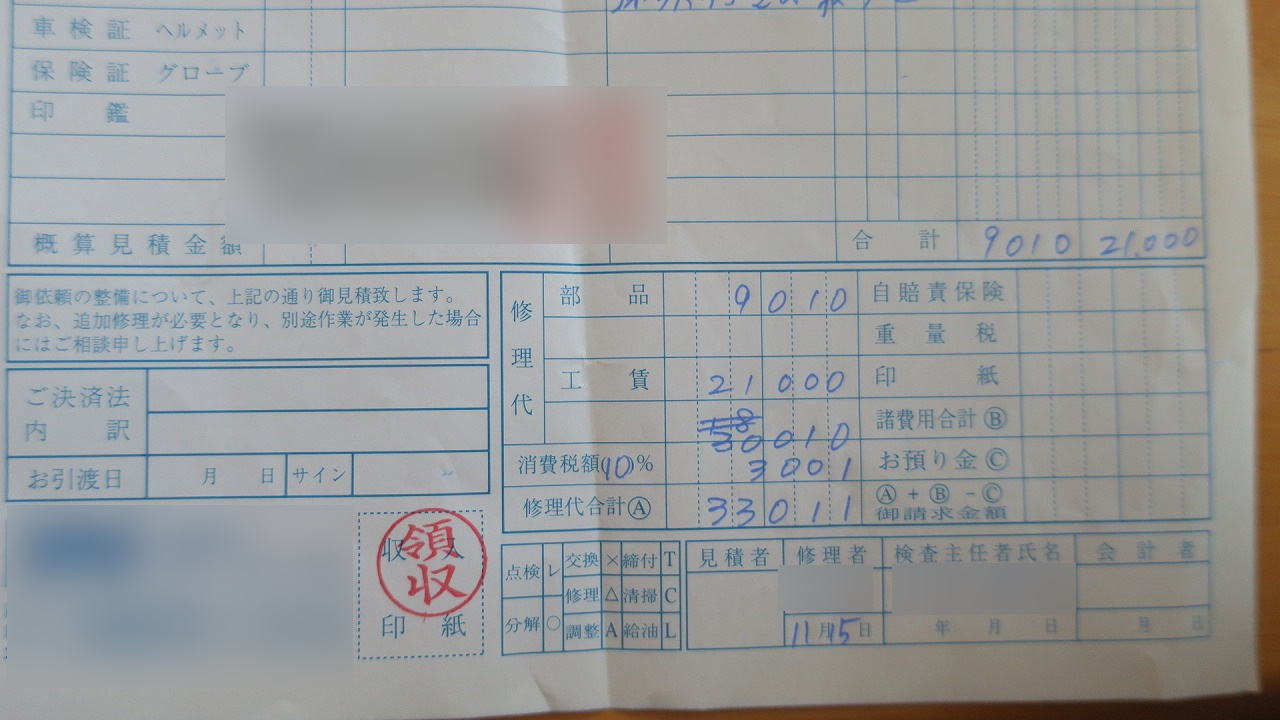 車検証 ヘルメット
保険証 グローブ
印 鑑
概算見積金額
合 計 9010 21.000
御依頼の整備について、上記の通り御見積致します。
なお、追加修理が必要となり、別途作業が発生した場合
にはご相談申し上げます。
ご決済法
内 訳
お引渡日 月 日 サイン
修理代
部 品 9010
工 賃 21000
30010
消費税額(10)% 3001
修理代合計Ⓐ 33011
自賠責保険
重 量 税
印 紙
諸費用合計Ⓑ
お預り金Ⓒ
Ⓐ+Ⓑ-Ⓒ
御請求金額
収入
印 紙
領収
点検 レ 交換 × 締付 T
修理 △ 清掃 C
分解 ○ 調整 A 給油 L
見積者 修理者 検査主任者氏名 会計者
11月15日 年 月 日 月 日